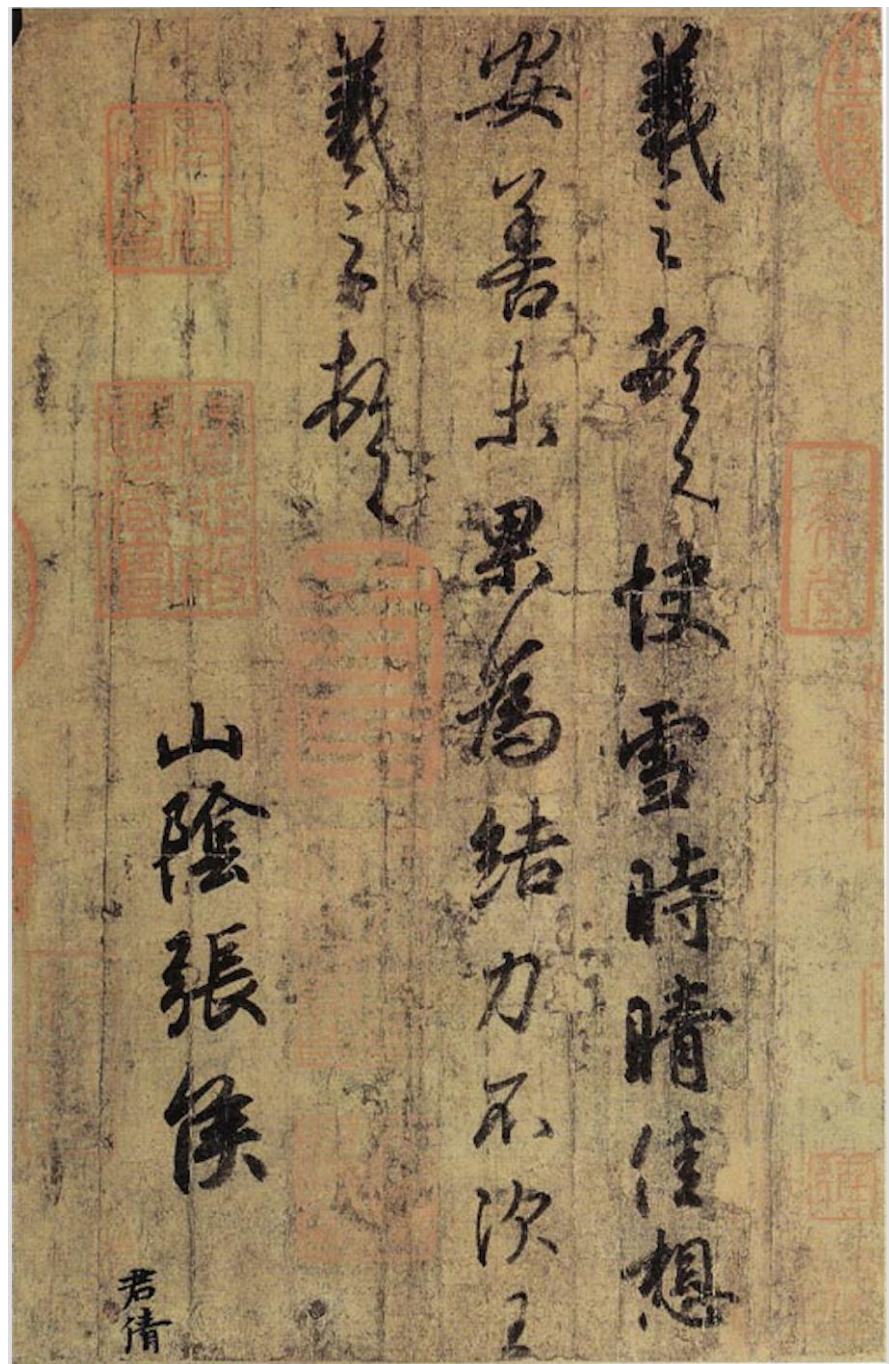 羲之頓首快雪時晴佳想
安善未果為結力不次王
羲之頓首
山陰張侯
君倩
三希堂